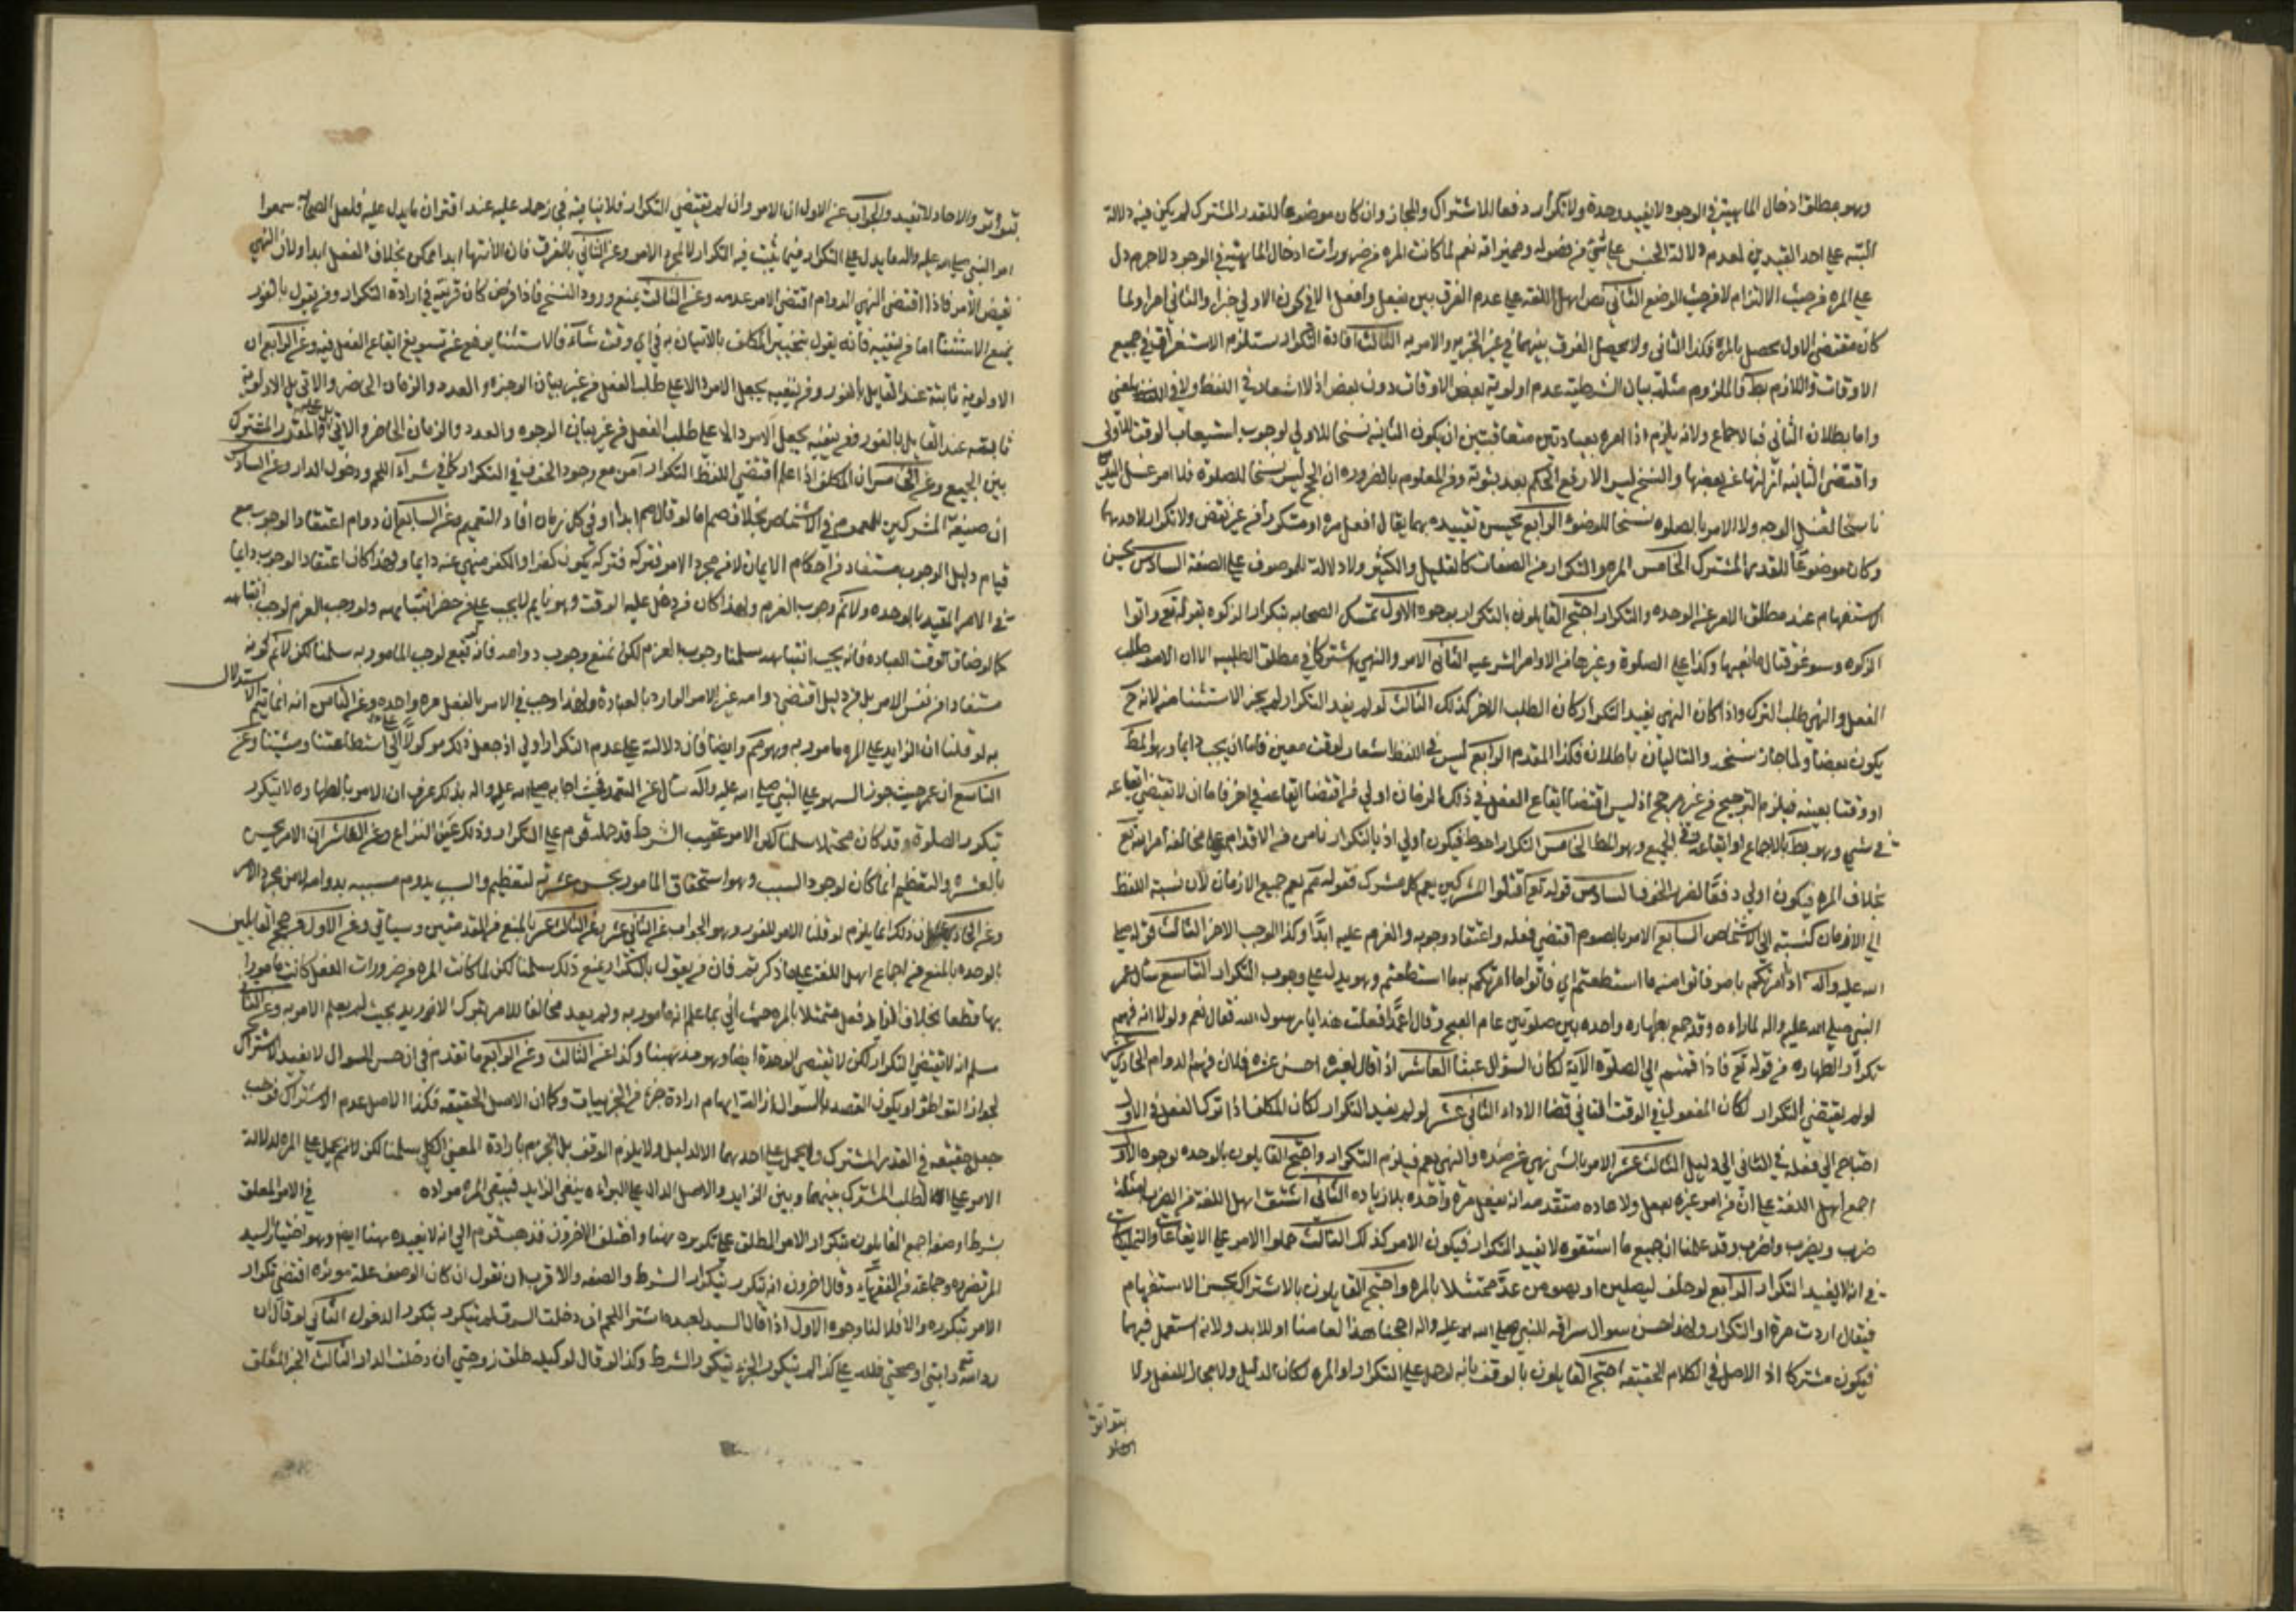 وهو مطلق ادخال الماهية في الوجود لا تفيد وحدة ولا تكرار دفعا للاشتراك والمجاز وان كان موضوعا للقدر المشترك لم يكن فيه دلالة
البتة على احد القيدين لعدم دلالة الجنس على شي من فصوله ومميزاته نعم لما كانت المره من ضرورات ادخال الماهية في الوجود لاجرم دل
على المره من حيث الالتزام لا من حيث الوضع الثاني نص اهل اللغة على عدم الفرق بين يفعل وافعل الا في كون الاولي خبرا والثاني امرا ولما
كان مقتضي الاول يحصل بالمره فكذا الثاني ولا يحصل الفرق بينهما في غير الخبرية والامريه الثالث افادة التكرار يستلزم الاستغراق في جميع
الاوقات واللازم بط فالملزوم مثله بيان الشرطية عدم اولوية بعض الاوقات دون بعض اذ لا اشعار في اللفظ ولا في المعني
واما بطلان الثاني فبالاجماع ولانه يلزم اذا امر بعبادتين متعاقبتين ان يكون الثانيه نسخا للاولي لوجوب استيعاب الوقت للاولي
واقتضي الثانيه ازالتها عن بعضها والنسخ ليس الا رفع الحكم بعد ثبوته ومن المعلوم بالضروره ان الحج ليس نسخا للصلوة فلا امر غسل اليدين
ناسخا لغسل الوجه ولا الامر بالصلوه نسخا للوضوء الرابع يحسن تقييده بهما يقال افعل مره او متكررا من غير نقض ولا تكرار لاحدهما
وكان موضوعا للقدر المشترك الخامس المره والتكرار من الصفات كالقليل والكثير ولا دلالة للموصوف على الصفة السادس يحسن
الاستفهام عند مطلق الامر عن الوحده والتكرار احتج القايلون بالتكرار بوجوه الاول تمسك الصحابه بتكرار الزكوه بقوله تع واتوا
الزكوه وسوغو قتال مانعيها وكذا على الصلوة وغيرها من الاوامر الشرعيه الثاني الامر والنهي اشتركا في مطلق الطلبيه الا ان الامر طلب
الفعل والنهي طلب الترك واذا كان النهي يفيد التكرار كان الطلب الاخر كذلك الثالث لو لم يفد التكرار لم يجز الاستثناء منه لانه ح
يكون نقضا ولما جاز نسخه والتاليان باطلان فكذا المقدم الرابع ليس في اللفظ اشعار بوقت معين فاما ان يجب دايما وهو المط
او وقتا بعينه فيلزم الترجيح من غير مرجح اذ ليس اقتضا ايقاع الفعل في ذلك الزمان اولي من اقتضا ايقاعه في اخر فاما ان لا تقتضي ايقاعه
في شي وهو بط بالاجماع او ايقاعه في الجميع وهو المط الخامس التكرار احوط فيكون اولي اذ بالتكرار نامن من الاقدام على مخالفة امر الله تع
بخلاف المره فيكون اولي دفعا لضرر الخوف السادس قوله تع اقتلوا المشركين يعم كل مشرك فقوله صم يعم جميع الازمان لان نسبة اللفظ
الي الازمان كنسبته الي الاشخاص السابع الامر بالصوم اقتضي فعله واعتقاد وجوبه والعزم عليه ابدا وكذا الوجب الاخر الثامن قوله صلى
الله عليه واله اذا امرتكم بامر فاتوا منه ما استطعتم اي فاتوا ما امرتكم به ما استطعتم وهو يدل على وجوب التكرار التاسع سال عمر
النبي صلى الله عليه واله لما راه وقد جمع بطهاره واحده بين صلوتين عام الفتح وقال اعمدا فعلت هذا يا رسول الله فقال نعم ولولا انه فهم
تكرار الطهاره من قوله تع فاذا قمتم الي الصلوة الاية لكان السؤال عبثا العاشر اذ اقال لغيره احسن عشرة فلان فهم الدوام الحادي عشر
لو لم يقتضي التكرار لكان المفعول في الوقت الثاني قضا لا اداء الثاني عشر لو لم يفيد التكرار لكان المكلف اذا ترك الفعل في الاول
احتاج الي فعله في الثاني الي دليل الثالث عشر الامر بالشي نهي عن ضده والنهي يعم فيلزم التكرار واحتج القايلون بالوحده بوجوه الاول
اجمع اهل اللغة على ان من امر غيره بفعل ولا عاده متقدمه انه يفعل مرة واحده بلا زياده الثاني اشتق اهل اللغة من الضرب امثلة
ضرب ويضرب واضرب وقد علمنا ان جميع ما اشتقوه لا يفيد التكرار فيكون الامر كذلك الثالث حملوا الامر على الايقاعات والتمليكات
في انه لا يفيد التكرار الرابع لو حلف ليصلين او يصومن عد ممتثلا بالمره واحتج القايلون بالاشتراك بحسن الاستفهام
فيقال اردت مرة او التكرار ولهذا حسن سوال سراقه للنبي صلى الله عليه واله احجنا هذا لعامنا او للابد ولانه استعمل فيهما
فيكون مشتركا اذ الاصل في الكلام الحقيقة احتج القايلون بالوقف بانه لو دل على التكرار او المره لكان لدليل ولا مجال للعقل ولا
بتواتر
بتواتر والاحاد لا تفيد والجواب عن الاول ان الامر وان لم يقتضي التكرار فلا ينافيه في حمله عليه عند اقتران ما يدل عليه فلعل الصحابة سمعوا
امر النبي صلى الله عليه واله ما يدل على التكرار فيما ثبت فيه التكرار لا لمجرد الامر وعن الثاني بالفرق فان الانتهاء ابدا ممكن بخلاف الفعل ابدا ولان النهي
نقيض الامر فاذا اقتضي النهي الدوام اقتضي الامر عدمه وعن الثالث يمنع ورود النسخ فاذا فرض كان قرينة في ارادة التكرار ومن يقول بالفور
يمنع الاستثناء اما من ينفيه فانه يقول بتخيير المكلف بالاتيان به في اي وقت شاء فالاستثناء يرفع عنه تسويغ ايقاع الفعل فيه وعن الرابع ان
الاولوية ثابتة عند القايل بالفور ومن ينفيه يجعل الامر دالا على طلب الفعل من غير بيان الوجوه والعدد والزمان الحاضر والاتي بل الاولوية
ثابتة عند القايل بالفور ومن ينفيه يجعل الامر دالا على طلب الفعل من غير بيان الوجوه والعدد والزمان الحاضر والاتي بل على القدر المشترك
بين الجميع وعن الخامس ان المكلف اذا علم اقتضي اللفظ التكرار امن مع وجود الخوف في التكرار كما في شراء اللحم ودخول الدار وعن السادس
ان صيغة المشركين للعموم في الاشخاص بخلاف صم اما لو قال صم ابدا او في كل زمان افاد التعميم وعن السابع ان دوام اعتقاد الوجوب مع
قيام دليل الوجوب مستفاد من احكام الايمان لا من مجرد الامر فتركه فتركه يكون كفرا والكفر منهي عنه دايما ولهذا كان اعتقاد الوجوب دايما
في الامر المقيد بالوحده ولانم وجوب العزم ولهذا كان من دخل عليه الوقت وهو نايم لا يجب على من حضر انتباهه ولو وجب العزم لوجب انتباهه
كما لو ضاق الوقت العباده فانه يجب انتباهه سلمنا وجوب العزم لكن نمنع وجوب دوامه فانه تبع لوجوب المامور به سلمنا لكن لانم كونه
مستفادا من نفس الامر بل من دليل اقتضي دوامه غير الامر الوارد بالعبادة ولهذا وجب في الامر بالفعل مره واحده وعن الثامن انه انما يتم الاستدلال
به لو قلنا ان الزايد على المره مامور به وهو مم وايضا فان دلالته على عدم التكرار اولي اذ جعل ذلك موكولا الي استطاعتنا ومشيتنا وعن
التاسع ان عمر حيث جوز السهو على النبي صلى الله عليه واله سال عن التعمد وحيث اجابه صلى الله عليه واله بذلك عرف ان الامر بالطهاره لا يتكرر
بتكرر الصلوة وقد كان محتملا سلمنا لكن الامر عقيب الشرط قد حمله قوم على التكرار وذلك غير النزاع وعن العاشر ان الامر بحسن
بالعشره والتعظيم انما كان لوجود السبب وهو استحقاق المامور بحسن عشرته لتعظيم والسبب يدوم مسببه بدوامه لا من مجرد الامر
وعن الحادي عشر ان ذلك انما يلزم لو قلنا الامر للفور وهو الجواب عن الثاني عشر وعن الثالث عشر بالمنع من المقدمتين وسياتي وعن الاول من حجج القايلين
بالوحده بالمنع من اجماع اهل اللغة على ما ذكرتم فان من يقول بالتكرار يمنع ذلك سلمنا لكن لما كانت المره من ضرورات الفعل كانت مامورا
بها قطعا بخلاف الزايد فعل متمثلا بالمره حيث اتي بما علم انه مامور به ولم يعد مخالفا للامر بترك الازيد بحيث لم يعلم الامر به وعن الثاني
سلم انه لا يقتضي التكرار لكن لا يقتضي الوحدة ايضا وهو مذهبنا وكذا عن الثالث وعن الرابع ما تقدم في ان حسن السوال لا يفيد الاشتراك
لجواز التواطؤ او يكون القصد بالسوال ازالة ايهام ارادة جزء من الجزييات وكما ان الاصل الحقيقه فكذا الاصل عدم الاشتراك فوجب
جعله حقيقه في القدر المشترك ولا يحمل على احدهما الا لدليل ولا يلزم الوقف بل الجزم بارادة المعني الكلي سلمنا لكن لانم يحمل على المره لدلالة
الامر على الطلب المشترك بينهما وبين الزايد والاصل الدال على البراءه ينفي الزايد فيبقي المره مراده في الامر المعلق
بشرط او صفه اجمع القايلون بتكرار الامر المطلق على تكريره هنا واختلف الاخرون فذهب قوم الي انه لا يفيده هنا ايضا وهو اختيار السيد
المرتضي وجماعة من الفقهاء وقال اخرون انه تكرر بتكرار الشرط والصفه والاقرب ان نقول ان كان الوصف علة موثره اقتضي تكرار
الامر بتكرره والا فلا لنا وجوه الاول اذا قال السيد لعبده اشتر اللحم ان دخلت السوق لم يتكرر بتكرر الدخول الثاني لو قال ان
رد الله دابتي او صحتي فلله على كذا لم يتكرر الجزاء بتكرر الشرط وكذا لو قال لوكيله طلق زوجتي ان دخلت الدار الثالث الخبر المعلق